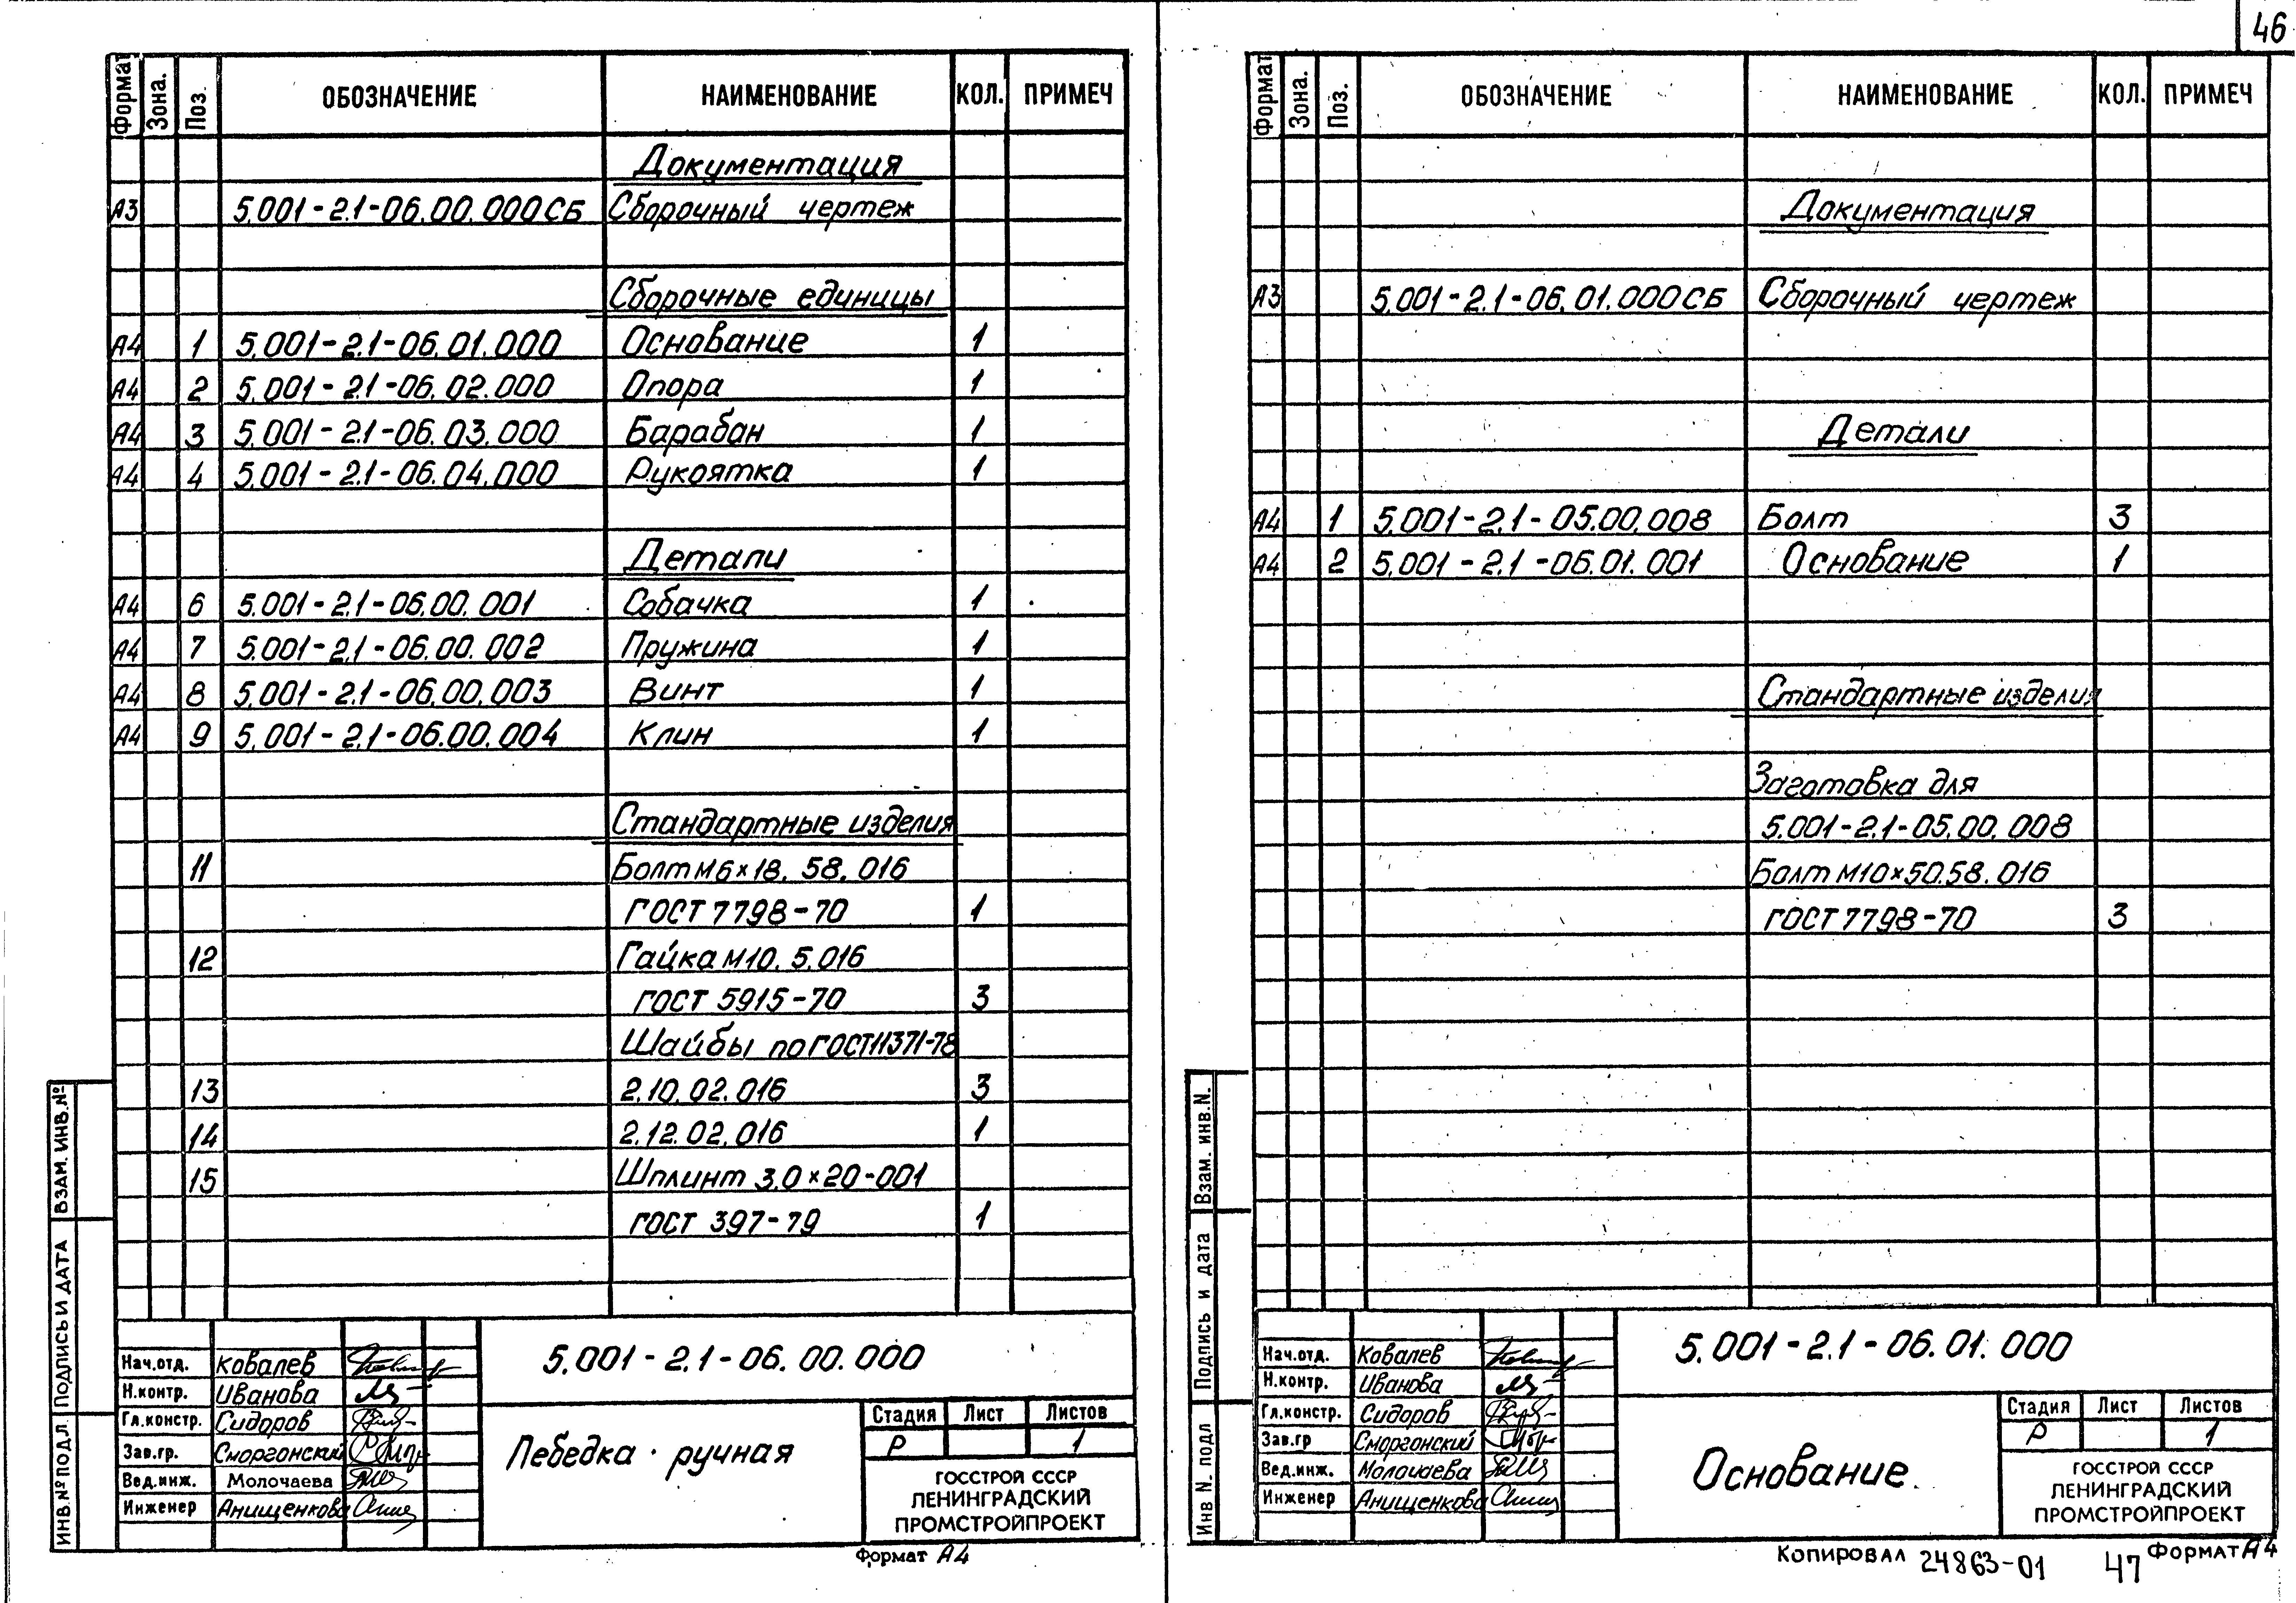 46
Формат Зона. Поз. ОБОЗНАЧЕНИЕ НАИМЕНОВАНИЕ КОЛ. ПРИМЕЧ
Документация
А3 5.001-2.1-06.00.000СБ Сборочный чертеж
Сборочные единицы
А4 1 5.001-2.1-06.01.000 Основание 1
А4 2 5.001-2.1-06.02.000 Опора 1
А4 3 5.001-2.1-06.03.000 Барабан 1
А4 4 5.001-2.1-06.04.000 Рукоятка 1
Детали
А4 6 5.001-2.1-06.00.001 Собачка 1
А4 7 5.001-2.1-06.00.002 Пружина 1
А4 8 5.001-2.1-06.00.003 Винт 1
А4 9 5.001-2.1-06.00.004 Клин 1
Стандартные изделия
11 Болт М6×18.58.016
ГОСТ 7798-70 1
12 Гайка М10.5.016
ГОСТ 5915-70 3
Шайбы по ГОСТ 11371-78
13 2.10.02.016 3
14 2.12.02.016 1
15 Шплинт 3.0×20-001
ГОСТ 397-79 1
ИНВ.№ПОДЛ. ПОДПИСЬ И ДАТА ВЗАМ. ИНВ.№
Нач.отд. Ковалев
Н.контр. Иванова
Гл.констр. Сидоров
Зав.гр. Сморгонский
Вед.инж. Молочаева
Инженер Анищенкова
5.001-2.1-06.00.000
Лебедка ручная
Стадия Лист Листов
Р 1
ГОССТРОЙ СССР
ЛЕНИНГРАДСКИЙ
ПРОМСТРОЙПРОЕКТ
Формат А4
Формат Зона. Поз. ОБОЗНАЧЕНИЕ НАИМЕНОВАНИЕ КОЛ. ПРИМЕЧ
Документация
А3 5.001-2.1-06.01.000СБ Сборочный чертеж
Детали
А4 1 5.001-2.1-05.00.008 Болт 3
А4 2 5.001-2.1-06.01.001 Основание 1
Стандартные изделия
Заготовка для
5.001-2.1-05.00.008
Болт М10×50.58.016
ГОСТ 7798-70 3
Инв N. подл Подпись и дата Взам. инв.N.
Нач.отд. Ковалев
Н.контр. Иванова
Гл.констр. Сидоров
Зав.гр Сморгонский
Вед.инж. Молочаева
Инженер Анищенкова
5.001-2.1-06.01.000
Основание
Стадия Лист Листов
Р 1
ГОССТРОЙ СССР
ЛЕНИНГРАДСКИЙ
ПРОМСТРОЙПРОЕКТ
Копировал 24863-01 47 Формат А4